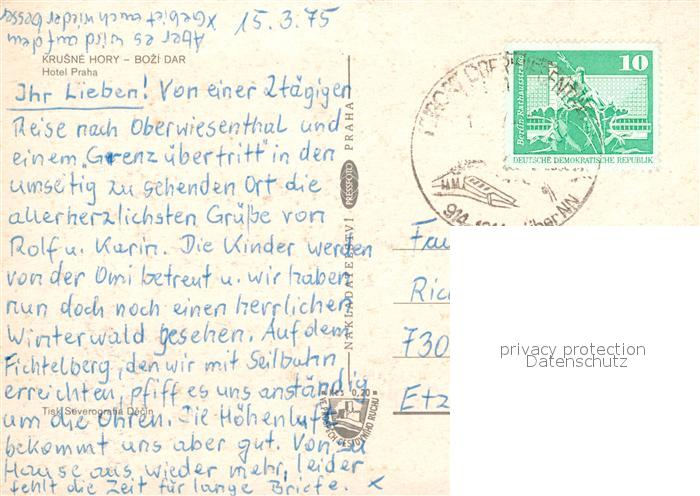 15.3.75
KRUŠNÉ HORY – BOŽÍ DAR
Hotel Praha
Ihr Lieben! Von einer 2tägigen
Reise nach Oberwiesenthal und
einem „Grenzübertritt" in den
umseitig zu sehenden Ort die
allerherzlichsten Grüße von
Rolf u. Karin. Die Kinder werden
von der Omi betreut u. wir haben
nun doch noch einen herrlichen
Winterwald gesehen. Auf dem
Fichtelberg, den wir mit Seilbahn
erreichten, pfiff es uns anständig
um die Ohren. Die Höhenluft
bekommt uns aber gut. Von zu
Hause aus wieder mehr, leider
fehlt die Zeit für lange Briefe. x
x Gebiet auch wieder besser
Aber es wird auf dem
Tisk Severografia Děčín
NAKLADATELSTVÍ PRESSFOTO PRAHA
Kčs 0,20
VE PROSPĚCH CESTOVNÍHO RUCHU
10
Berlin, Rathausstraße
DEUTSCHE DEMOKRATISCHE REPUBLIK
KURORT OBERWIESENTHAL
über NN
Fa
Ric
730
Etz
privacy protection
Datenschutz